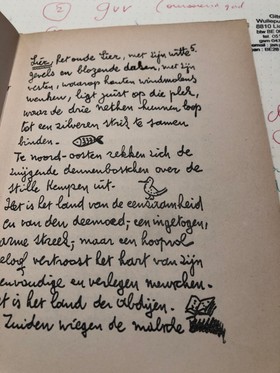 2 guv
8810 Li
Lier, het oude Lier, met zijn witte
gevels en blozende daken, met zijn
vesten, waarop houten windmolens
wenken, ligt juist op die plek,
waar de drie nethen hunnen loop
tot een zilveren strik te samen
binden.
Te noord-oosten rekken zich de
zuizende dennenbosschen over de
stille Kempen uit.
Het is het land van de eenzaamheid
en van den deemoed; een ingetogen,
arme streek; maar een hoopvol
geloof vertroost het hart van zijn
eenvoudige en verlegen menschen.
et is het land der abdijen.
Zuiden wiegen de malsche